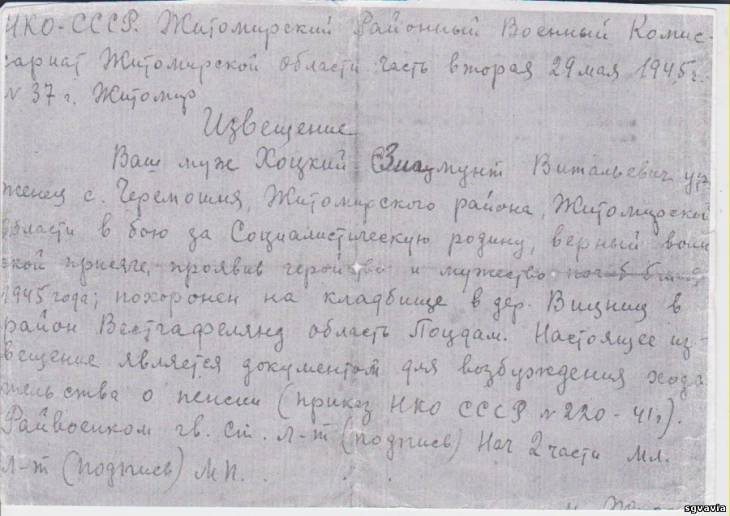 НКО-СССР. Житомирский Районный Военный Комис-
сариат Житомирской области часть вторая 29 мая 1945 г.
N 37 г. Житомир
Извещение
Ваш муж Хоцкий Зигмунт Витальевич уро
женец с. Черемошня, Житомирского района, Житомирской
области в бою за Социалистическую родину, верный воин
ской присяге, проявив геройство и мужество погиб
1945 года, похоронен на кладбище в дер. Вицниц в
район Вестгафелянд область Поцдам. Настоящее из-
вещение является документом для возбуждения хода
тельства о пенсии (приказ НКО СССР N 220-41г).
Райвоенком гв. ст. л-т (подпись) Нач 2 части мл.
л-т (подпись) МП.
sgvavia